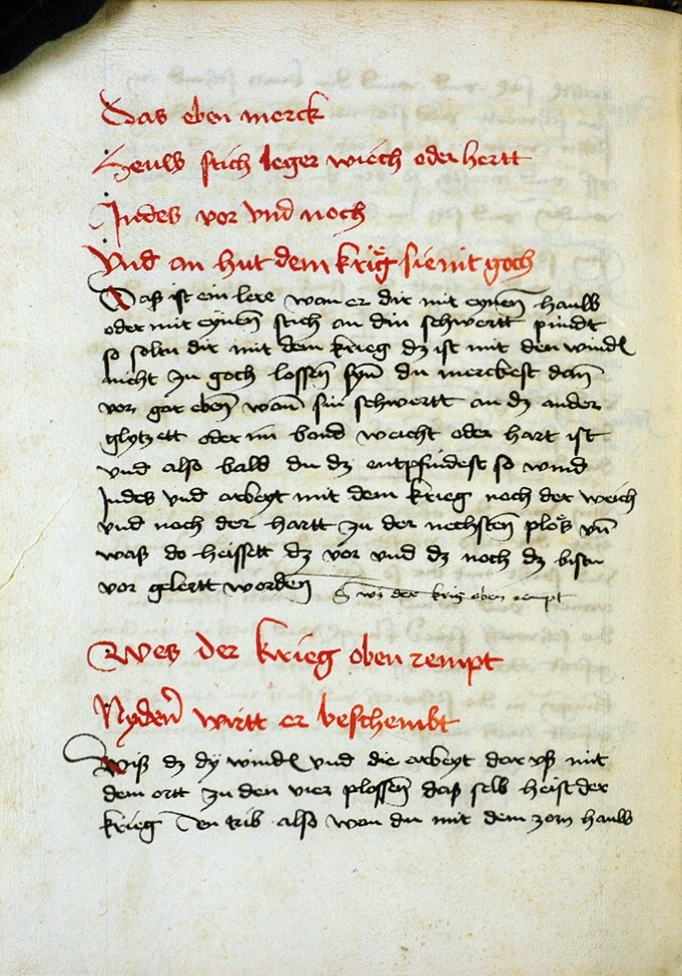 Das eben merck
Heuws stich leger wiech oder hertt
Indes vor vnd noch
Vnd an hut dem krig sie nit goch
Daß ist ein lere wan er dir mit eynen hauws
oder mit eynen stich an din schwertt pindt
so soltu dir mit dem krieg dz ist mit den windn
nicht zu goch lossen syn du merckest dan
vor gar eben wan sin schwertt an dz ander
glytzett oder im band weicht oder hart ist
vnd also bald du dz entpfindest so wind
Indes vnd arbeyt mit dem krieg noch der weich
vnd noch der hartt zu der nechsten plos vn
waß do heissett dz vor vnd dz noch dz bistu
vor gelertt worden wes der krig oben rempt
Wes der krieg oben rempt
Nyden wirtt er beschembt
Wiß dz dy windn vnd die arbeyt dor vß mit
dem ortt zu den vier plossen daß selb heist der
krieg Den trib also wan du mit dem zorn hauws